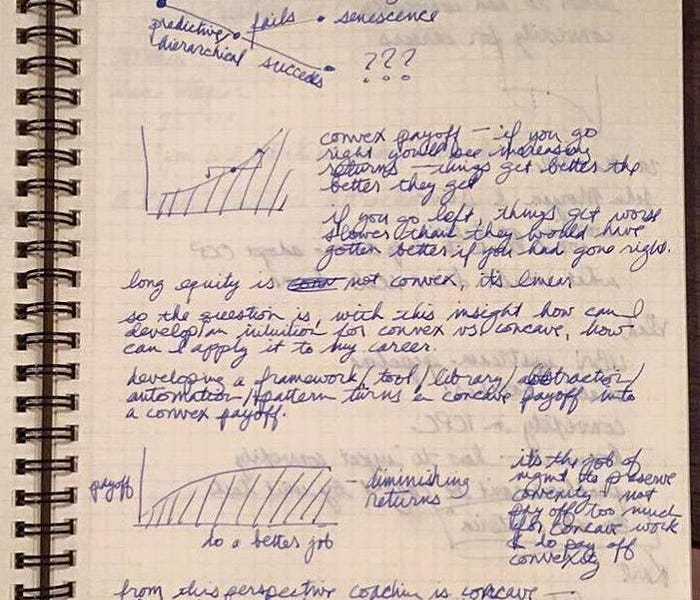 fails • senescence
predictive
hierarchical success ???
convex payoff — if you go
right you'll see increasing
returns — things get better the
better they get
if you go left, things get worse
slower than they would have
gotten better if you had gone right.
long equity is not convex, its linear
so the question is, with this insight how can I
develop an intuition for convex vs concave, how
can I apply it to my career.
developing a framework/tool/library/abstraction/
automation/pattern turns a concave payoff into
a convex payoff.
payoff
diminishing
returns
do a better job
its the job of
mgmt to preserve
convexity, not
pay off too much
for concave work
& to pay off
convexity
from this perspective coaching is concave —